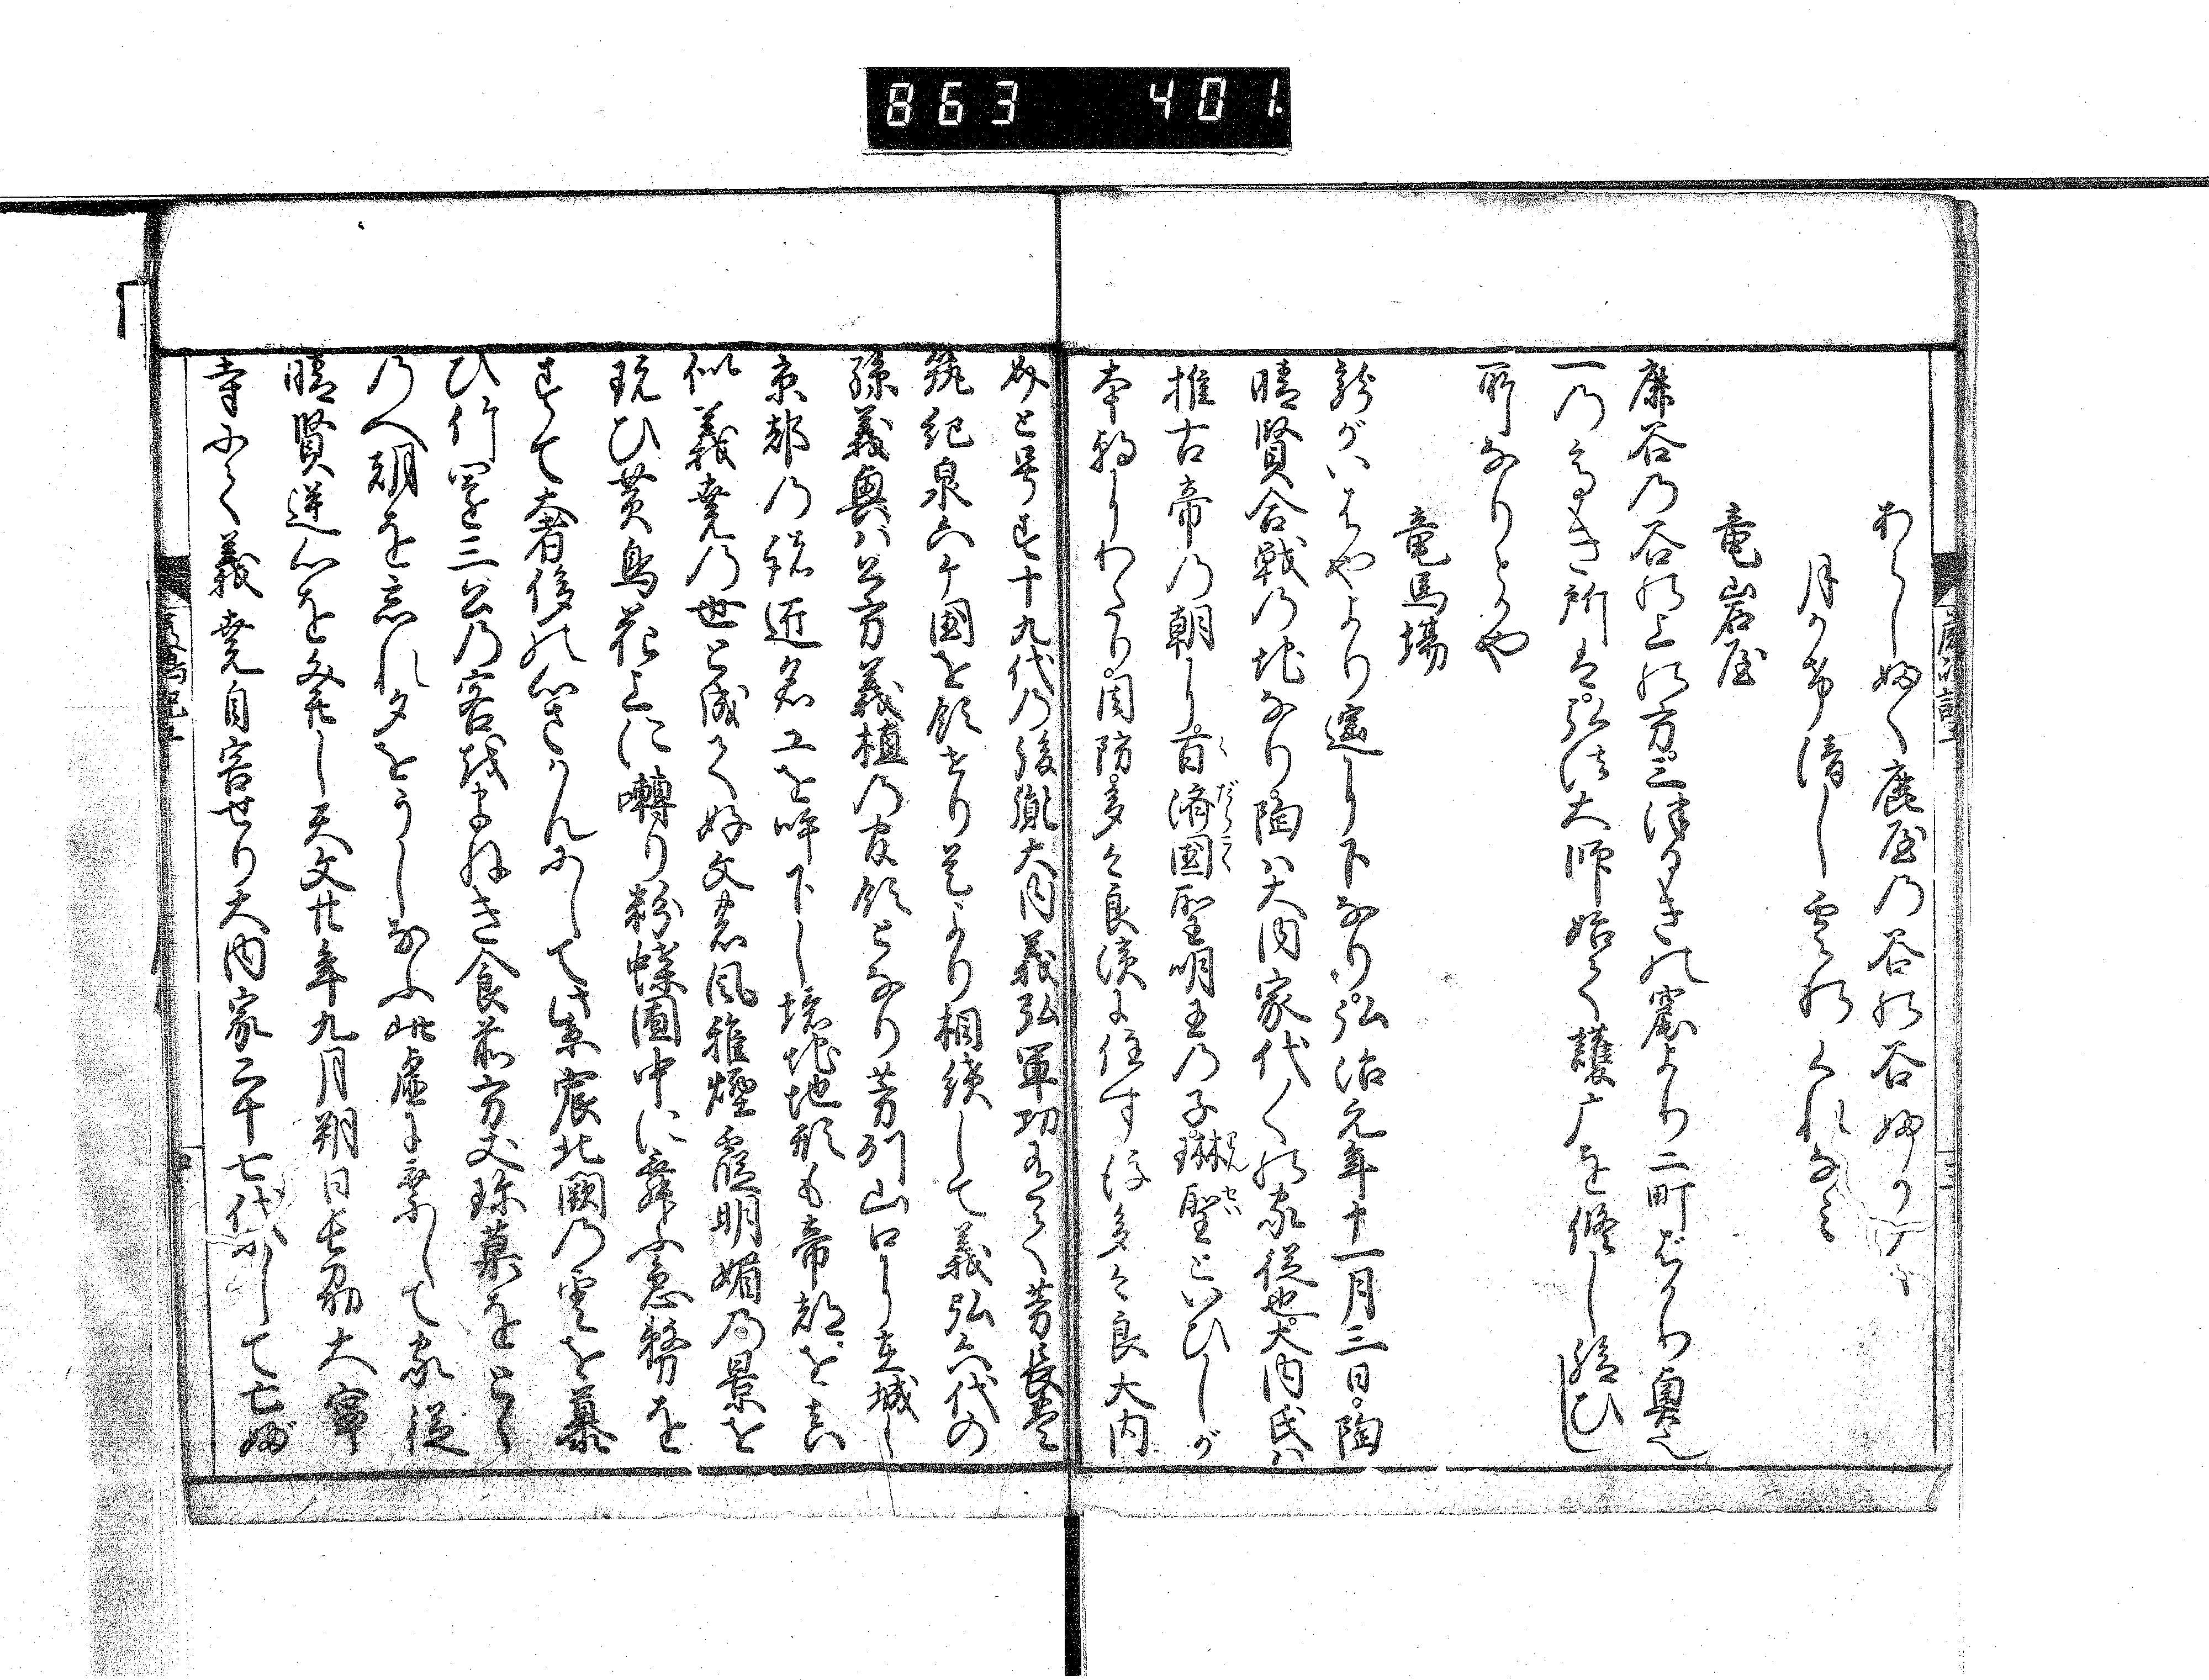 863 401
あらし吹く鹿屋の谷の谷ふりて
月かげ清し雲のくれなゐ
竜岩屋
鹿谷の谷の上の方三津たきの麓より二町ばかり奥也
一の高き所は弘法大師始て護广を修し給ひし
所なりとかや
竜馬場
竜がいはやより遥に下なり弘治元年十一月三日陶
晴賢合戦の地なり陶ハ大内家代〳〵の家従也大内氏ハ
推古帝の朝に百済国聖明王の子琳聖といひしが
本朝にわたり周防多々良濱に住す後多々良大内
と号す十九代の後胤大内義弘軍功ありて芳長豊
筑紀泉六ケ国を領せり是より相続して義弘六代の
孫義興ハ公方義植の官領となり芳列山口に在城し
京都の諸匠名工を呼下し境地地形も帝都を真
似義堯の世と成て好文芸風雅煙霞明媚の景を
玩ひ黄鳥花上に囀り粉蝶園中に舞ふ怠務を
すて奢侈の心さかんにして紫宸北闕の雲を慕
ひ竹園三公の客をまねき食前方丈珍菓をとと
のへ朝を忘れ夕をうしなふ此虚に乗して家従
晴賢逆心を企し天文廿年九月朔日長刕大寧
寺にて義堯自害せり大内家二十七代にして亡ぬ